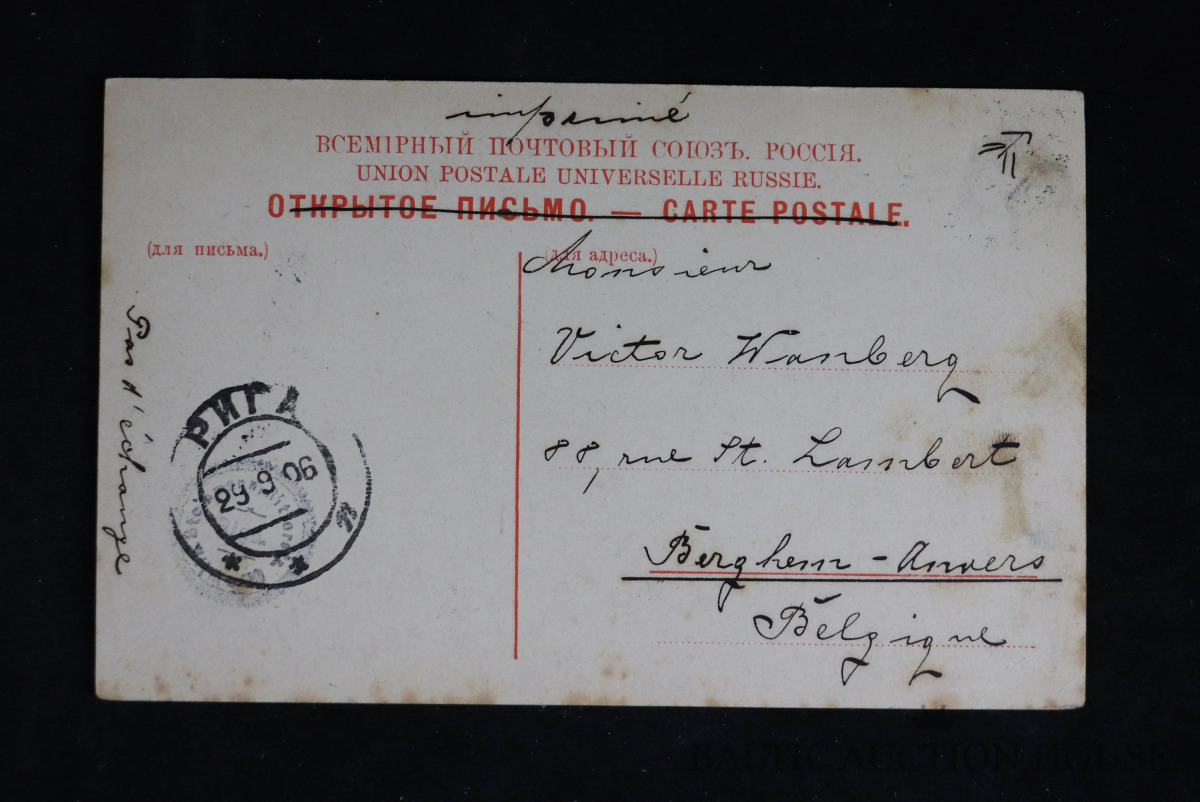 imprimé
ВСЕМІРНЫЙ ПОЧТОВЫЙ СОЮЗЪ. РОССІЯ.
UNION POSTALE UNIVERSELLE RUSSIE.
ОТКРЫТОЕ ПИСЬМО. — CARTE POSTALE.
(для письма.)
(для адреса.)
Monsieur
Victor Wanberg
88, rue St. Lambert
Berghem - Anvers
Belgique
Pas d'échange
РИГА
29 9 06
11
BALTIC AUCTION HOUSE